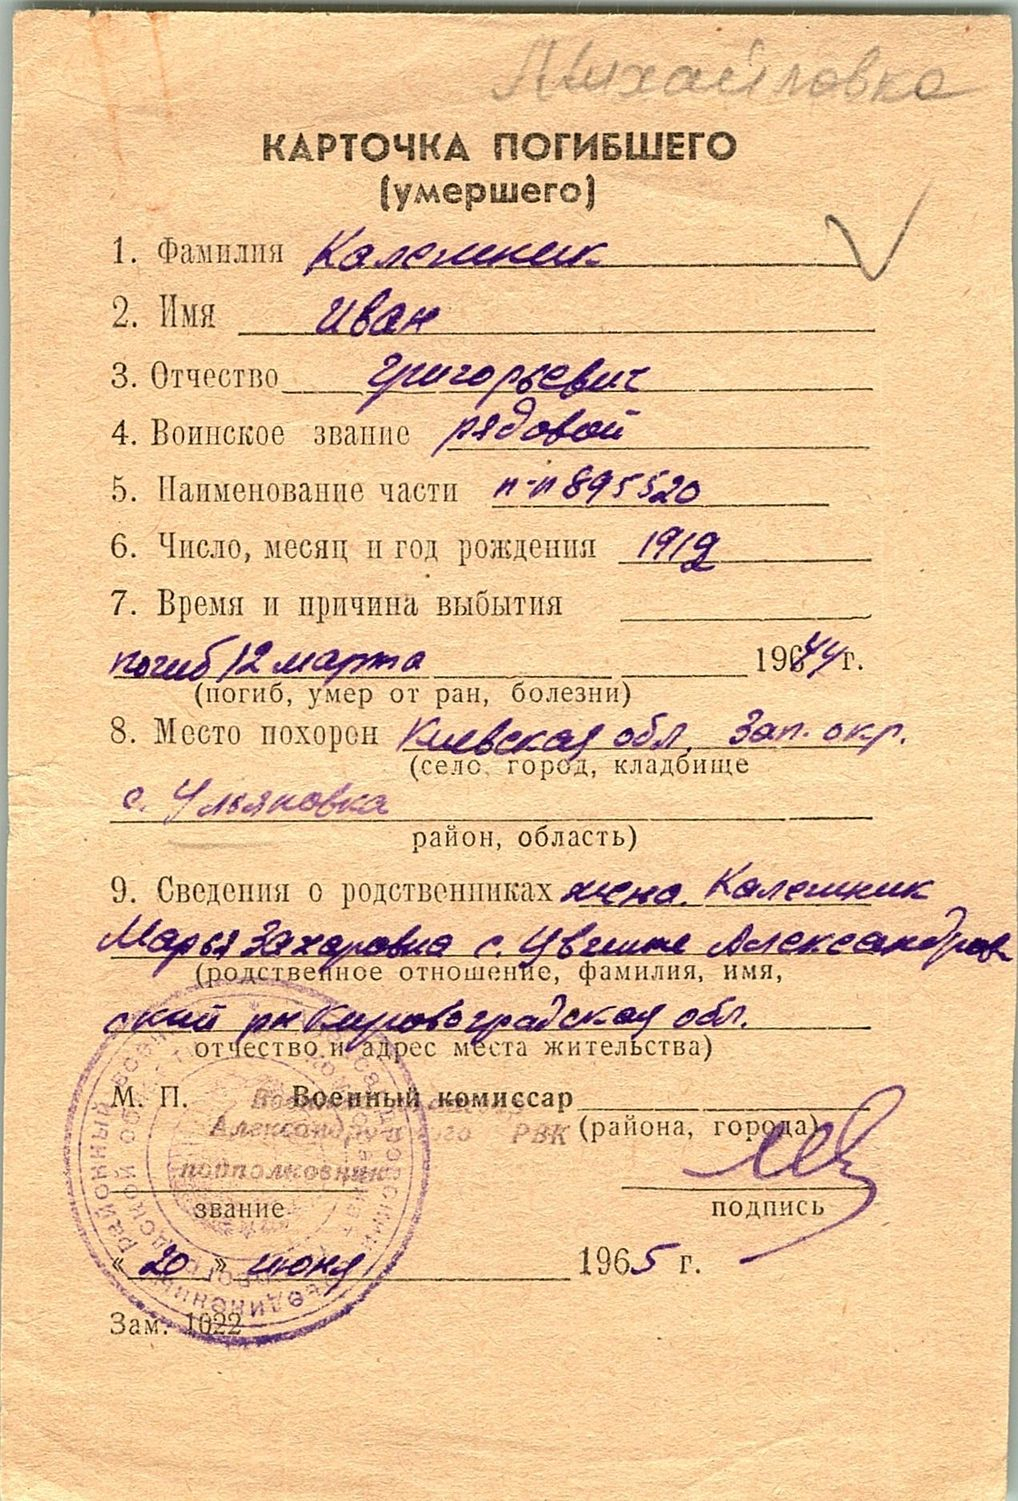 Михайловка
КАРТОЧКА ПОГИБШЕГО
(умершего)
1. Фамилия Калешник
2. Имя Иван
3. Отчество Григорьевич
4. Воинское звание рядовой
5. Наименование части п-п 895520
6. Число, месяц и год рождения 1912
7. Время и причина выбытия
погиб 12 марта 1944 г.
(погиб, умер от ран, болезни)
8. Место похорон Киевская обл. Зап. окр.
(село, город, кладбище
с. Ульяновка
район, область)
9. Сведения о родственниках жена. Калешник
Марья Захаровна с. Александров
(родственное отношение, фамилия, имя,
ский рн Кировоградская обл.
отчество и адрес места жительства)
М. П. Военный комиссар
Александрийского РВК (района, города)
подполковник
звание подпись
„20” июня 1965 г.
Зам. 1022